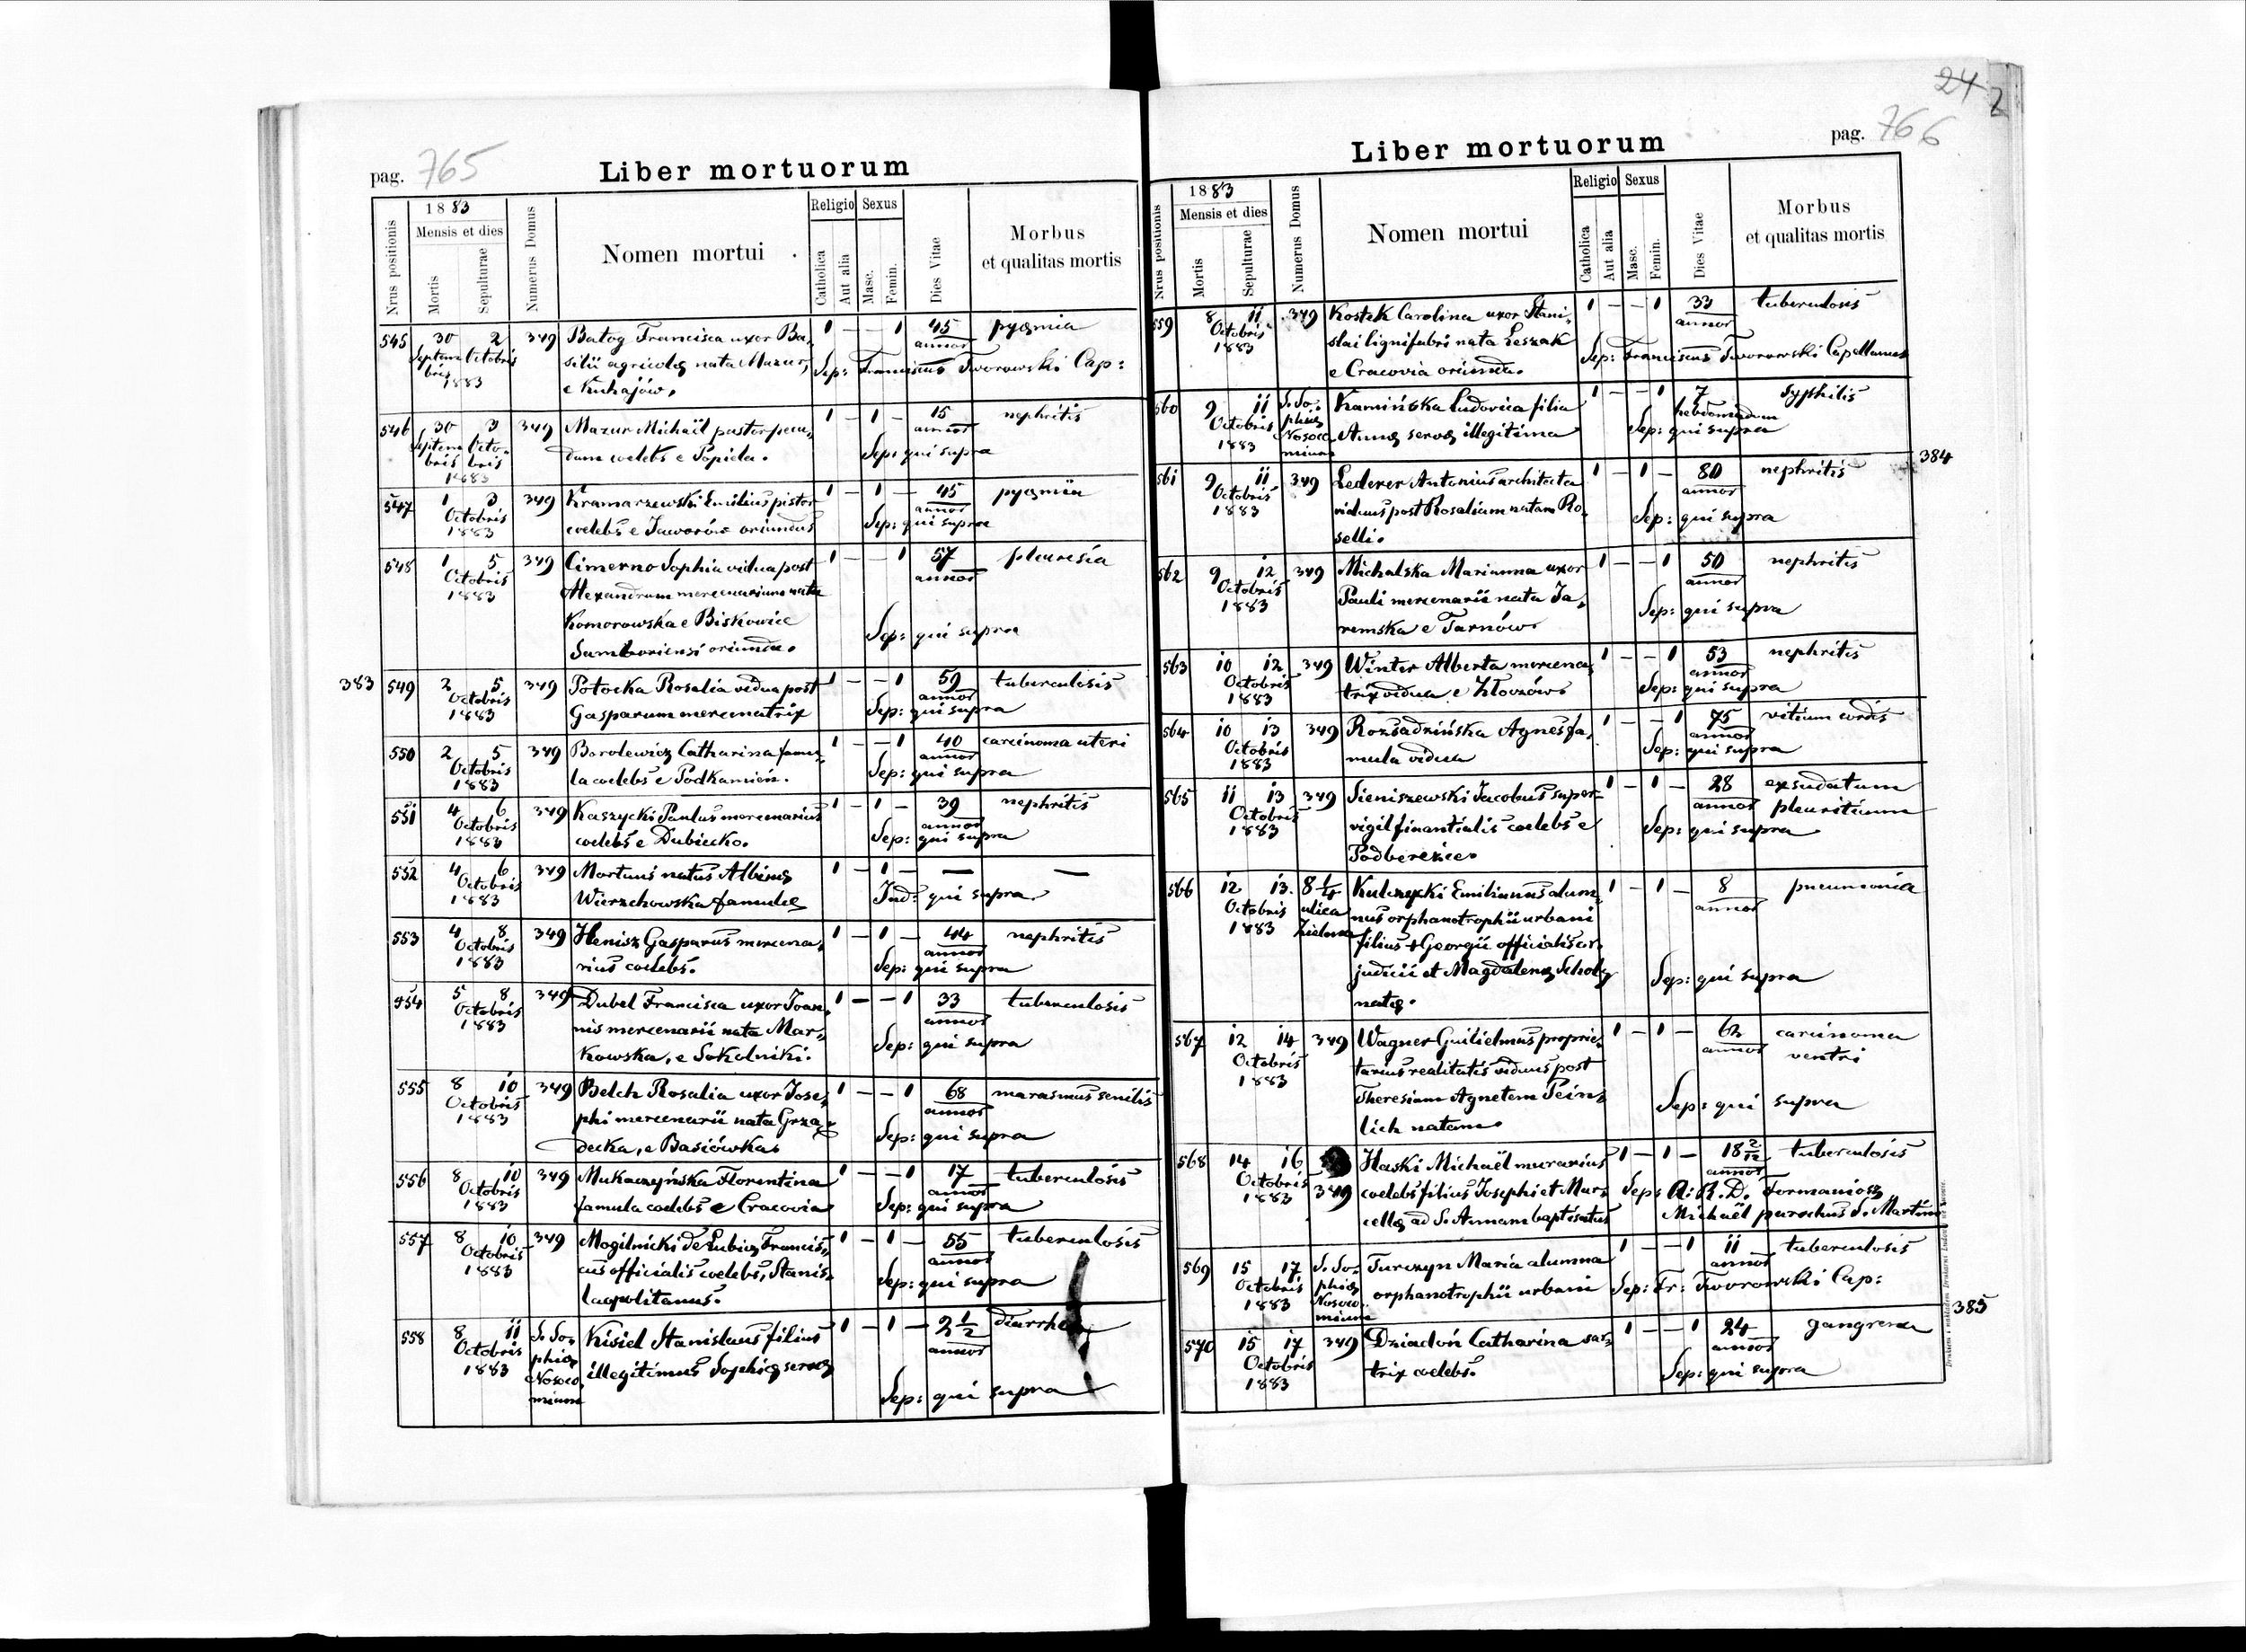 pag. 765
Liber mortuorum
Nrus positionis
1883
Mensis et dies
Mortis
Sepulturae
Numerus Domus
Nomen mortui
Religio
Catholica
Aut alia
Sexus
Masc.
Femin.
Dies Vitae
Morbus
et qualitas mortis
545 30 2 349 Batog Francisca uxor Ba, 1 — — 1 45 pyæmia
Septem Octobris silii agricolę nata Mazur, annor
bris 1883 e Kuhajów. Sep: Franciscus Tworowski Cap:
546 30 3 349 Mazur Michaël pastor pecu, 1 — 1 — 15 nephritis
Septem Octo- dum coelebs e Popiela. annor
bris bris Sep: qui supra
1883
547 1 3 349 Kramarzewski Emilius pistor 1 — 1 — 45 pyæmia
Octobris coelebs e Jaworów oriundus annor
1883 Sep: qui supra
548 1 5 349 Cimerno Sophia vidua post 1 — — 1 57 pleuresia
Octobris Alexandrum mercenarium nata annor
1883 Komorowska e Biskowice
Samboriensi oriunda. Sep: qui supra
383 549 2 5 349 Potocka Rosalia vidua post 1 — — 1 59 tuberculosis
Octobris Gasparum mercenatrix annor
1883 Sep: qui supra
550 2 5 349 Borolewicz Catharina famu, 1 — — 1 40 carcinoma uteri
Octobris la coelebs e Podkamień. annor
1883 Sep: qui supra
551 4 6 349 Kaszycki Paulus mercenarius 1 — 1 — 39 nephritis
Octobris coelebs e Dubiecko. annor
1883 Sep: qui supra
552 4 6 349 Mortuus natus Albinę 1 — 1 — — —
Octobris Wierzchowska famulę Ind: qui supra
1883
553 4 8 349 Henisz Gasparus mercena, 1 — 1 — 44 nephritis
Octobris rius coelebs. annor
1883 Sep: qui supra
554 5 8 349 Dubel Francisca uxor Joan, 1 — — 1 33 tuberculosis
Octobris nis mercenarii nata Mar, annor
1883 kowska, e Sokolniki. Sep: qui supra
555 8 10 349 Belch Rosalia uxor Jose, 1 — — 1 68 marasmus senilis
Octobris phi mercenarii nata Grzą, annor
1883 decka, e Basiówka. Sep: qui supra
556 8 10 349 Mukaczyńska Florentina 1 — — 1 17 tuberculosis
Octobris famula coelebs e Cracovia annor
1883 Sep: qui supra
557 8 10 349 Mogilnicki de Lubicz Francis, 1 — 1 — 55 tuberculosis
Octobris cus officialis coelebs, Stanis, annor
1883 laopolitanus. Sep: qui supra
558 8 11 S. So, Kisiel Stanislaus filius 1 — 1 — 2 1/2 diarrhoea
Octobris phię illegitimus Sophię servę annor
1883 Nosoco,
mium Sep: qui supra
24
2
pag. 766
Liber mortuorum
Nrus positionis
1883
Mensis et dies
Mortis
Sepulturae
Numerus Domus
Nomen mortui
Religio
Catholica
Aut alia
Sexus
Masc.
Femin.
Dies Vitae
Morbus
et qualitas mortis
559 8 11 349 Kostek Carolina uxor Stani, 1 — — 1 33 tuberculosis
Octobris slai lignifabri nata Leszak annor
1883 e Cracovia oriunda. Sep: Franciscus Tworowski Capellanus
560 9 11 S. So, Kamińska Ludovica filia 1 — — 1 7 Syphilis
Octobris phię Annę servę illegitima hebdomadum
1883 Nosoco, Sep: qui supra
mium
384
561 9 11 349 Lederer Antonius architecta 1 — 1 — 80 nephritis
Octobris viduus post Rosaliam natam Ro, annor
1883 selli. Sep: qui supra
562 9 12 349 Michalska Marianna uxor 1 — — 1 50 nephritis
Octobris Pauli mercenarii nata Ja, annor
1883 remska e Tarnów. Sep: qui supra
563 10 12 349 Winter Alberta mercena, 1 — — 1 53 nephritis
Octobris trix vidua e Złoczów. annor
1883 Sep: qui supra
564 10 13 349 Rozsadzińska Agnes fa, 1 — — 1 75 vitium cordis
Octobris mula vidua annor
1883 Sep: qui supra
565 11 13 349 Sieniszewski Jacobus super- 1 — 1 — 28 exsudatum
Octobris vigil finantialis coelebs e annor pleuriticum
1883 Podberezie. Sep: qui supra
566 12 13. 8 1/4 Kulczycki Emilianus alum, 1 — 1 — 8 pneumonia
Octobris ulica nus orphanotrophii urbani annor
1883 Zielona filius + Georgii officialis cr.
judicii et Magdalenę Scholz Sep: qui supra
natę.
567 12 14 349 Wagner Guilielmus proprie, 1 — 1 — 62 carcinoma
Octobris tarius realitatis viduus post annor ventri
1883 Theresiam Agnetem Pein,
lich natam. Sep: qui supra
568 14 16 349 Haski Michaël murarius 1 — 1 — 18 2/12 tuberculosis
Octobris coelebs filius Josephi et Mar, annor
1883 cellę ad S. Annam baptisatus Sep: A: R. D. Formaniosz
Michaël parochus S. Martini
569 15 17 S. So, Turczyn Maria alumna 1 — — 1 11 tuberculosis
Octobris phię orphanotrophii urbani annor
1883 Nosoco, Sep: Fr: Tworowski Cap:
mium
385
570 15 17 349 Dziadoń Catharina sar, 1 — — 1 24 gangrena
Octobris trix coelebs. annor
1883 Sep: qui supra